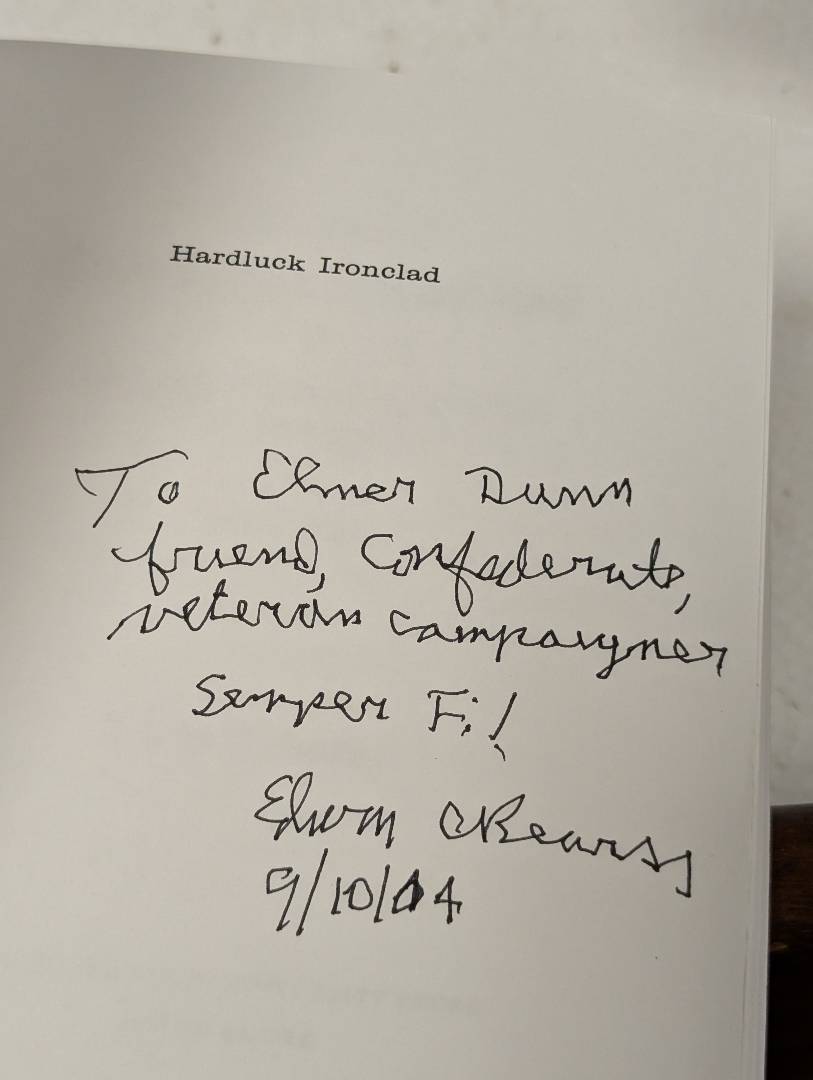 Hardluck Ironclad
To Elmer Dunn
friend, Confederate,
veteran campaigner
Semper Fi!
Edwin C Bearss
9/10/04